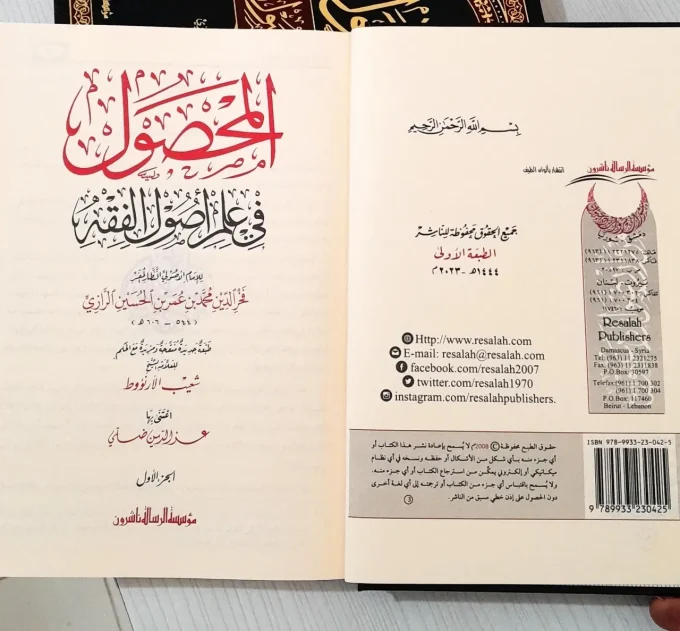 المحصول
في علم أصول الفقه
للإمام الأصولي النظار المفسر
فخر الدين محمد بن عمر بن الحسين الرازي
(٥٤٤ - ٦٠٦ هـ)
طبعة جديدة منقحة ومزيدة مع الحكم
للعلامة الشيخ
شعيب الأرنؤوط
اعتنى بها
عز الدين ضلي
الجزء الأول
مؤسسة الرسالة ناشرون
بسم الله الرحمن الرحيم
جميع الحقوق محفوظة للناشر
الطبعة الأولى
١٤٤٤هـ - ٢٠٢٣م
Http://www.resalah.com
E-mail: resalah@resalah.com
facebook.com/resalah2007
twitter.com/resalah1970
instagram.com/resalahpublishers.
مؤسسة الرسالة ناشرون
دمشق - سوريا
بيروت - لبنان
Resalah
Publishers
Damascus - Syria
Tel: (963) 11 2321275
Fax: (963) 11 2311838
P.O.Box: 30597
Telefax: (961) 1 700 302
(961) 1 700 304
P.O.Box: 117460
Beirut - Lebanon
حقوق الطبع محفوظة ©2008م لا يُسمح بإعادة نشر هذا الكتاب أو
أي جزء منه بأي شكل من الأشكال أو حفظه ونسخه في أي نظام
ميكانيكي أو إلكتروني يمكّن من استرجاع الكتاب أو أي جزء منه.
ولا يُسمح باقتباس أي جزء من الكتاب أو ترجمته إلى أي لغة أخرى
دون الحصول على إذن خطي مسبق من الناشر.
3
ISBN 978-9933-23-042-5
9 789933 230425